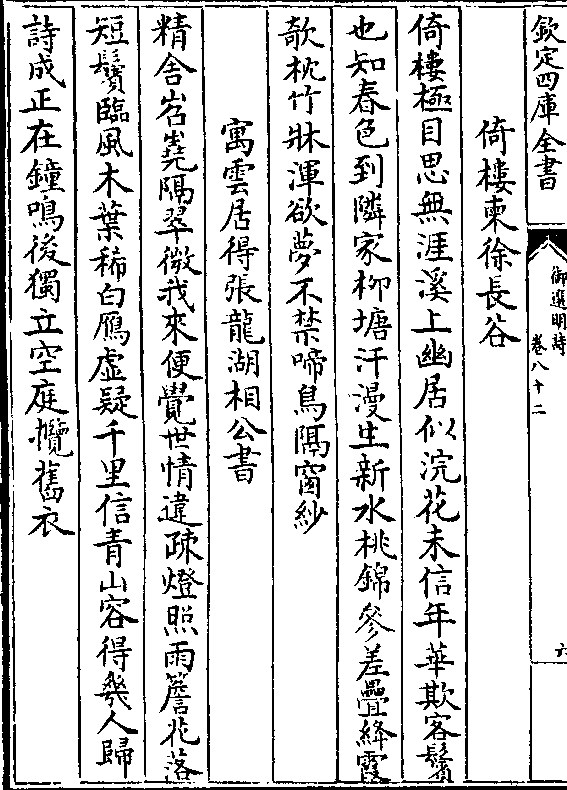 欽定四庫全書
御選明詩
卷八十二
六
倚樓柬徐長谷
倚樓極目思無涯溪上幽居似浣花未信年華欺客鬢
也知春色到隣家柳塘汗漫生新水桃錦參差疊絳霞
欹枕竹牀渾欲夢不禁啼鳥隔窗紗
寓雲居得張龍湖相公書
精舍岧嶤隔翠微我來便覺世情違疎燈照雨簷花落
短鬢臨風木葉稀白鴈虛疑千里信青山容得幾人歸
詩成正在鐘鳴後獨立空庭攬舊衣